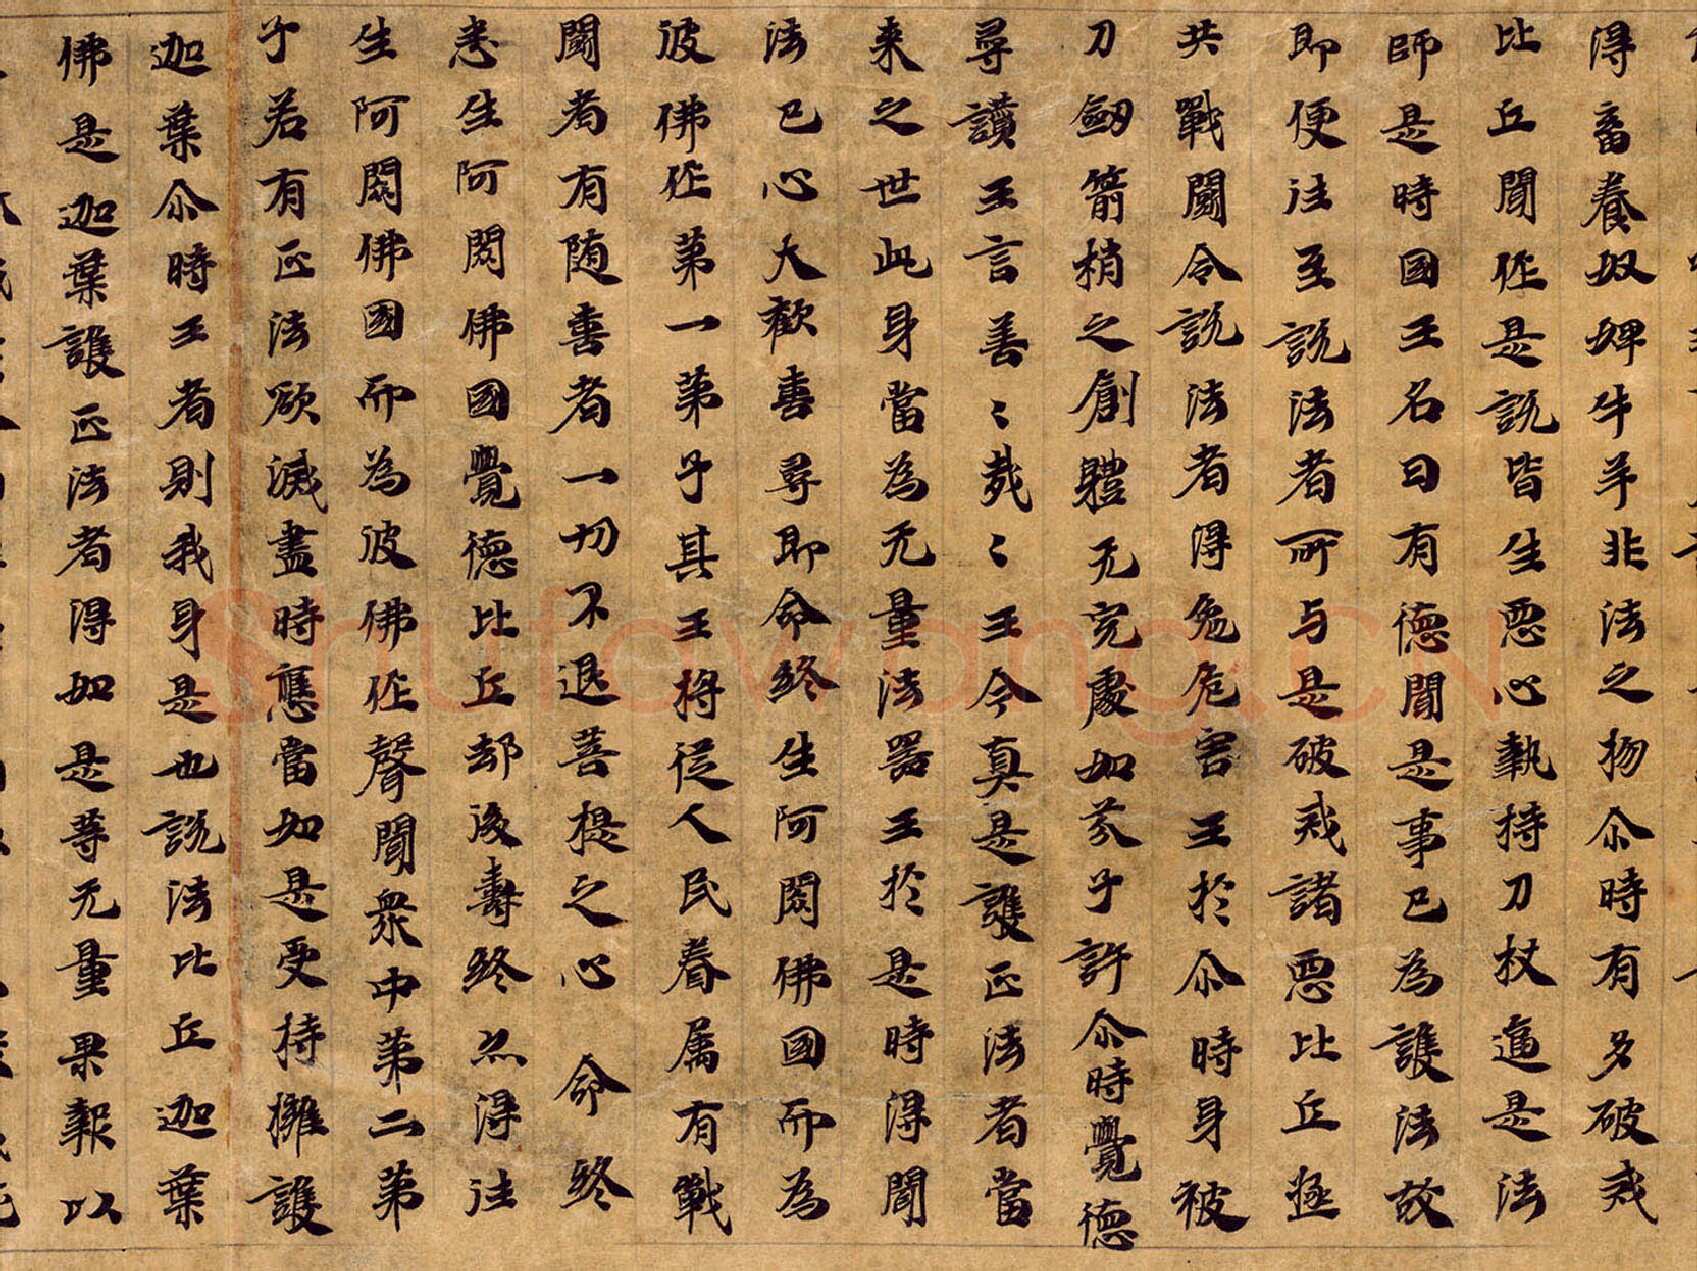 得畜養奴婢牛羊非法之物尒時有多破戒
比丘聞作是説皆生惡心執持刀杖逼是法
師是時國王名曰有德聞是事已為護法故
即便往至説法者所与是破戒諸惡比丘極
共戰鬪令説法者得免危害王於尒時身被
刀劒箭槊之創體无完處如芥子許尒時覺德
尋讚王言善〻哉〻王今真是護正法者當
来之世此身當為无量法器王於是時得聞
法已心大歡喜尋即命終生阿閦佛國而為
彼佛作第一弟子其王將從人民眷属有戰
鬪者有随喜者一切不退菩提之心命終
悉生阿閦佛國覺德比丘却後壽終亦得往
生阿閦佛國而為彼佛作聲聞衆中第二弟
子若有正法欲滅盡時應當如是受持擁護
迦葉尒時王者則我身是也説法比丘迦葉
佛是迦葉護正法者得如是等无量果報以
shufawang.CN